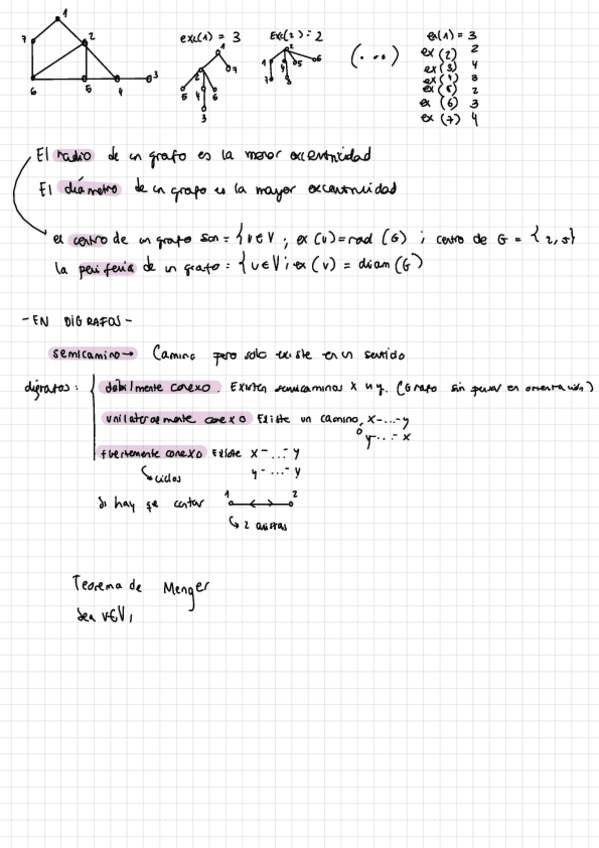 1
7
2
6
5
4
3
exc(1) = 3
1
2
7
5
4
6
3
Exc(2) = 2
2
1
4
5
6
7
3
(...)
ex(1) = 3
ex (2) 2
ex (3) 4
ex (4) 3
ex (5) 2
ex (6) 3
ex (7) 4
El radio de un grafo es la menor excentricidad
El diámetro de un grafo es la mayor excentricidad
el centro de un grafo son = { v ∈ V ; ex (v) = rad (G) ; centro de G = { 2, 5}
la periferia de un grafo : { v ∈ V ; ex (v) = diam (G)
- EN DIGRAFOS -
semicamino → Camino pero solo existe en un sentido
digrafos :
debilmente conexo. Existen semicaminos x n y. (Grafo sin pensar en orientación)
unilateralmente conexo Existe un camino, x-...-y
o
y...- x
fuertemente conexo Existe x - ...- y
y - ...- y
↳ ciclos
Si hay que contar
1 2
↳ 2 aristas
Teorema de Menger
Sea v∈V,